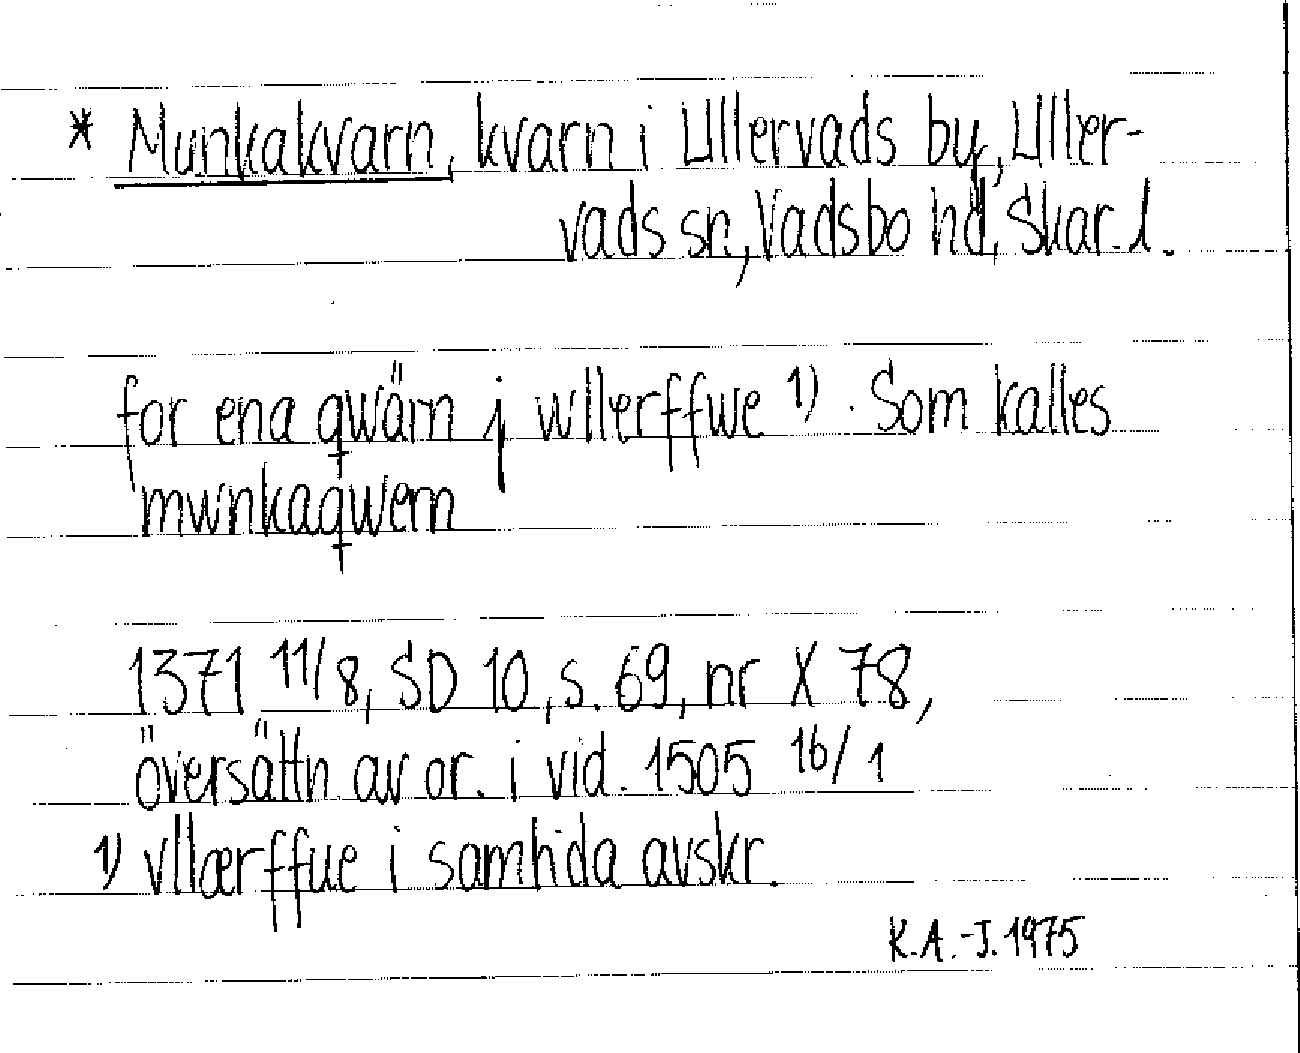 * Munkakvarn, kvarn i Ullervads by, Uller-
vads sn, Vadsbo hd, Skar. l.
for ena qwärn j wllerffwe 1) . Som kalles
mwnkaqwern
1371 11/8, SD 10, s. 69, nr X 78,
översättn av or. i vid. 1505 16/1
1) vllærffue i samtida avskr.
K.A.-J. 1975